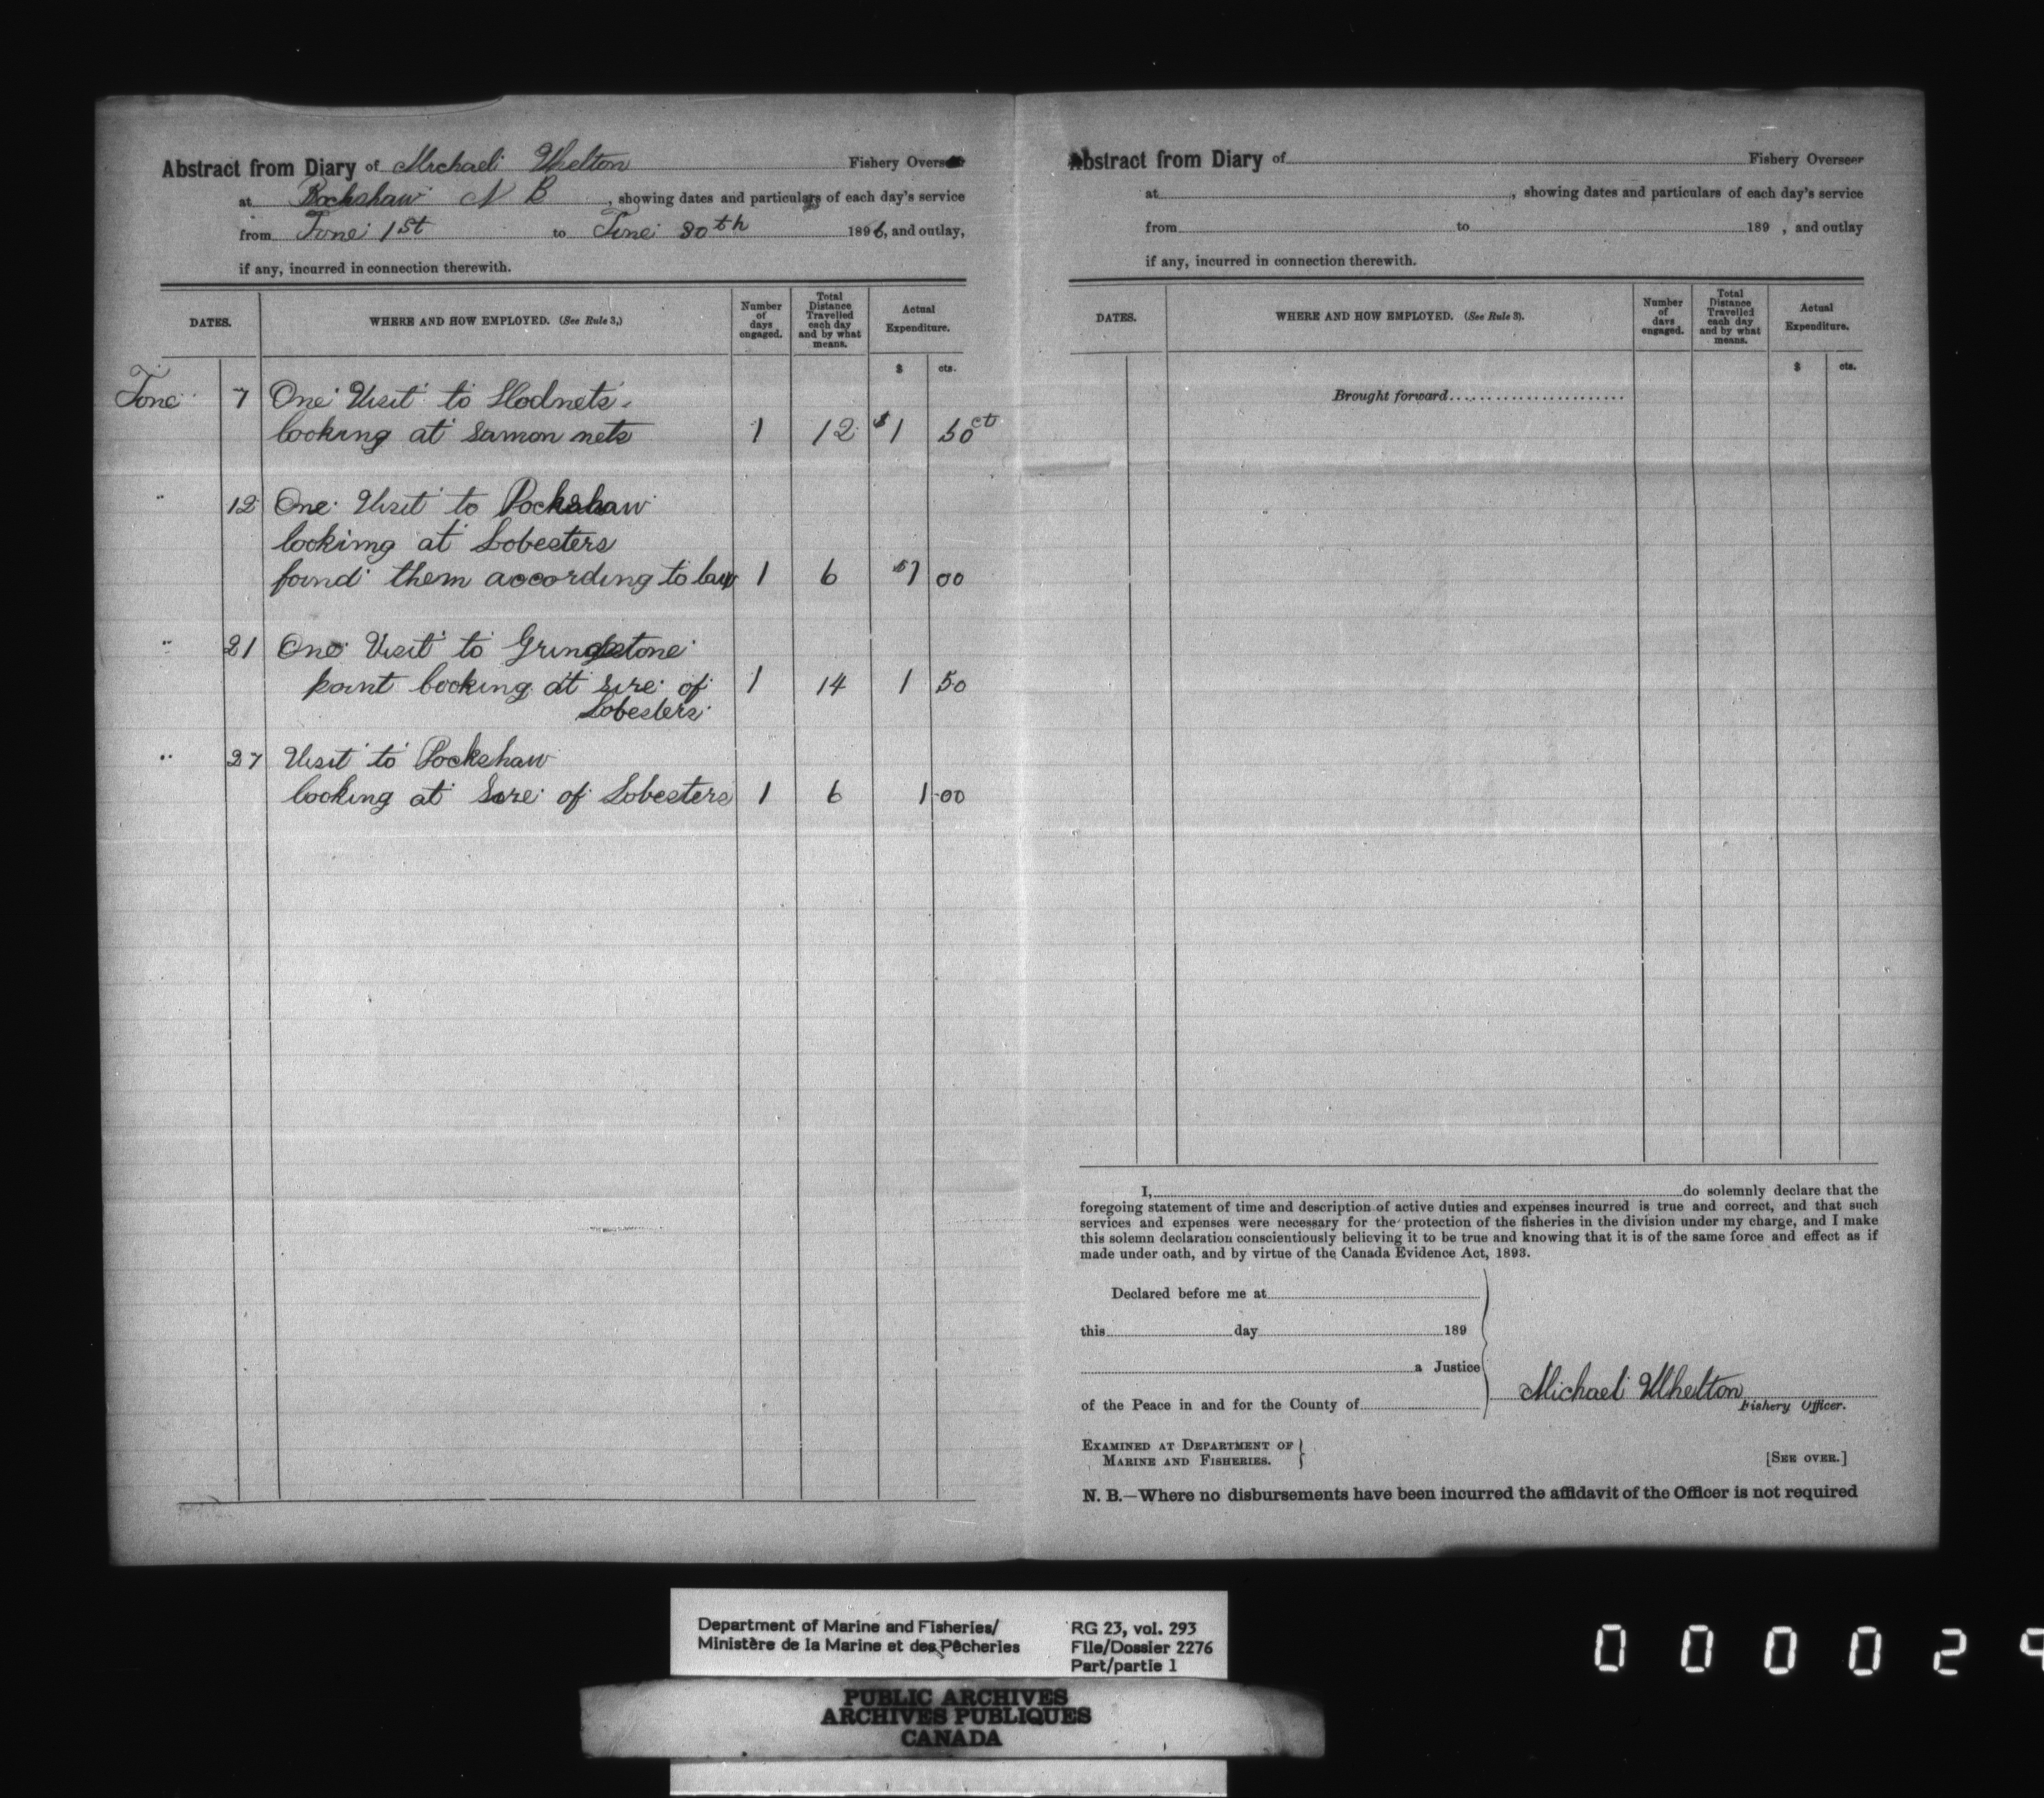 Abstract from Diary of Michael Whelton Fishery Overseer
at Pockshaw N B, showing dates and particulars of each day's service
from June 1st to June 30th 1896, and outlay,
if any, incurred in connection therewith.
DATES. WHERE AND HOW EMPLOYED. (See Rule 3,) Number of days engaged. Total Distance Travelled each day and by what means. Actual Expenditure.
$ cts.
June 7 One Visit to Hodnets
looking at samon nets 1 12 $1 50ct
" 12 One Visit to Pockshaw
looking at Lobesters
found them according to law 1 6 $1 00
" 21 One Visit to Grindstone
point looking at sire of 1 14 1 50
Lobesters
" 27 Visit to Pockshaw
looking at Sire of Lobesters 1 6 1 00
Abstract from Diary of Fishery Overseer
at , showing dates and particulars of each day's service
from to 189 , and outlay
if any, incurred in connection therewith.
DATES. WHERE AND HOW EMPLOYED. (See Rule 3). Number of days engaged. Total Distance Travelled each day and by what means. Actual Expenditure.
$ cts.
Brought forward
I, do solemnly declare that the
foregoing statement of time and description of active duties and expenses incurred is true and correct, and that such
services and expenses were necessary for the protection of the fisheries in the division under my charge, and I make
this solemn declaration conscientiously believing it to be true and knowing that it is of the same force and effect as if
made under oath, and by virtue of the Canada Evidence Act, 1893.
Declared before me at
this day 189
a Justice
of the Peace in and for the County of
Michael Whelton
Fishery Officer.
EXAMINED AT DEPARTMENT OF
MARINE AND FISHERIES.
[SEE OVER.]
N. B.—Where no disbursements have been incurred the affidavit of the Officer is not required
Department of Marine and Fisheries/
Ministère de la Marine et des Pêcheries
RG 23, vol. 293
File/Dossier 2276
Part/partie 1
PUBLIC ARCHIVES
ARCHIVES PUBLIQUES
CANADA
000029